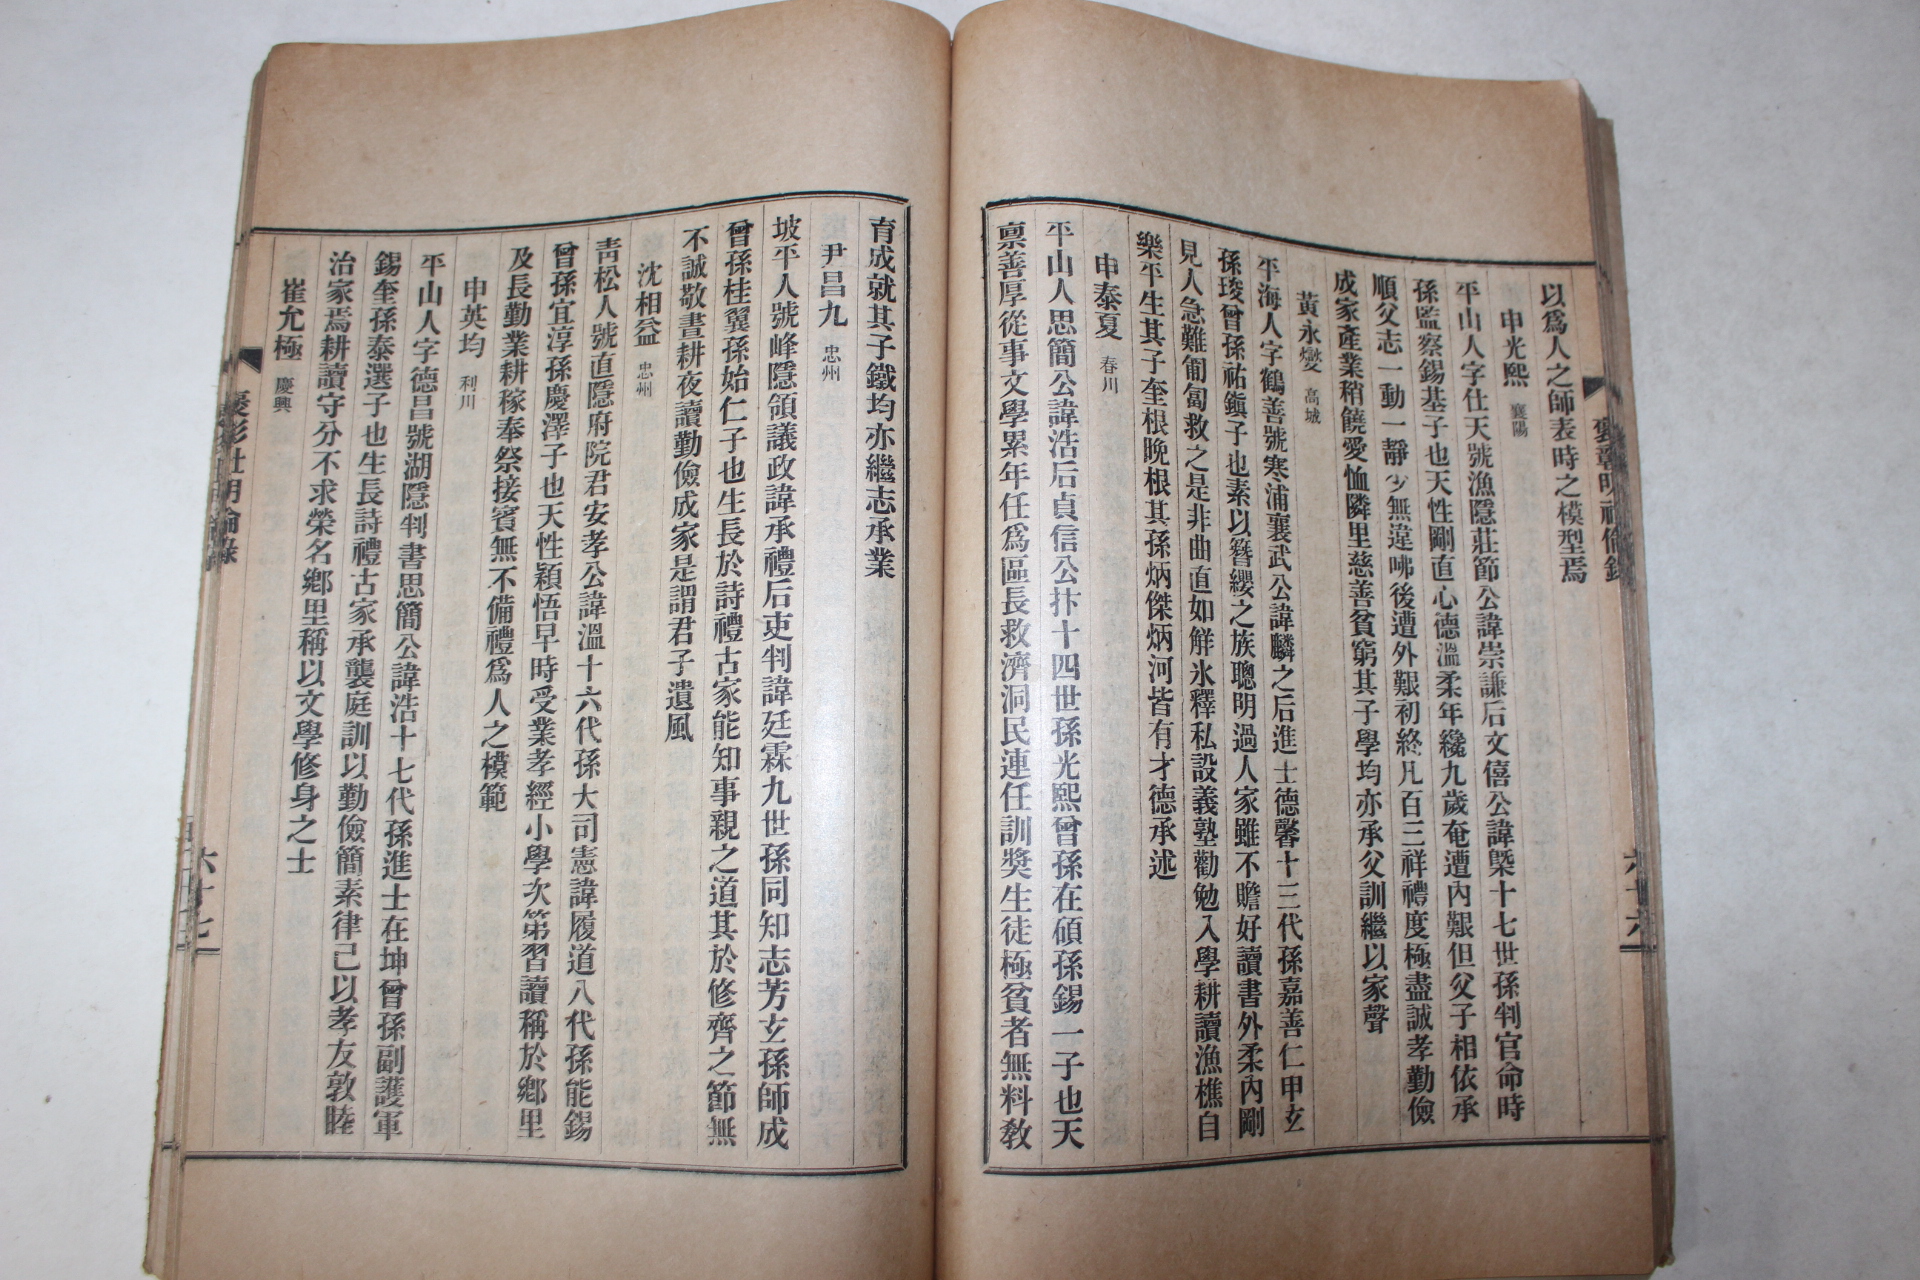 以爲人之師表時之模型焉
申光熙 襄陽
平山人字仕天號漁隱莊節公諱崇謙后文僖公諱槩十七世孫判官命時
孫監察錫基子也天性剛直心德溫柔年纔九歲奄遭內艱但父子相依承
順父志一動一靜少無違咈後遭外艱初終凡百三祥禮度極盡誠孝勤儉
成家產業稍饒愛恤隣里慈善貧窮其子學均亦承父訓繼以家聲
黃永燮 高城
平海人字鶴善號寒浦襄武公諱麟之后進士德馨十三代孫嘉善仁甲玄
孫琡曾孫祐鎭子也素以簪纓之族聰明過人家雖不贍好讀書外柔內剛
見人急難匍匐救之是非曲直如解氷釋私設義塾勸勉入學耕讀漁樵自
樂平生其子奎根晚根其孫炳傑炳河皆有才德承述
申泰夏 春川
平山人思簡公諱浩后貞信公抃十四世孫光熙曾孫在碩孫錫一子也天
禀善厚從事文學累年任爲區長救濟洞民連任訓獎生徒極貧者無料敎
育成就其子鐵均亦繼志承業
尹昌九 忠州
坡平人號峰隱領議政諱承禮后吏判諱廷霖九世孫同知志芳玄孫師成
曾孫桂翼孫始仁子也生長於詩禮古家能知事親之道其於修齊之節無
不誠敬晝耕夜讀勤儉成家是謂君子遺風
沈相益 忠州
靑松人號直隱府院君安孝公諱溫十六代孫大司憲諱履道八代孫能錫
曾孫宜淳孫慶澤子也天性穎悟早時受業孝經小學次第習讀稱於鄕里
及長勤業耕稼奉祭接賓無不備禮爲人之模範
申英均 利川
平山人字德昌號湖隱判書思簡公諱浩十七代孫進士在坤曾孫副護軍
錫奎孫泰選子也生長詩禮古家承襲庭訓以勤儉簡素律己以孝友敦睦
治家焉耕讀守分不求榮名鄕里稱以文學修身之士
崔允極 慶興
六十七